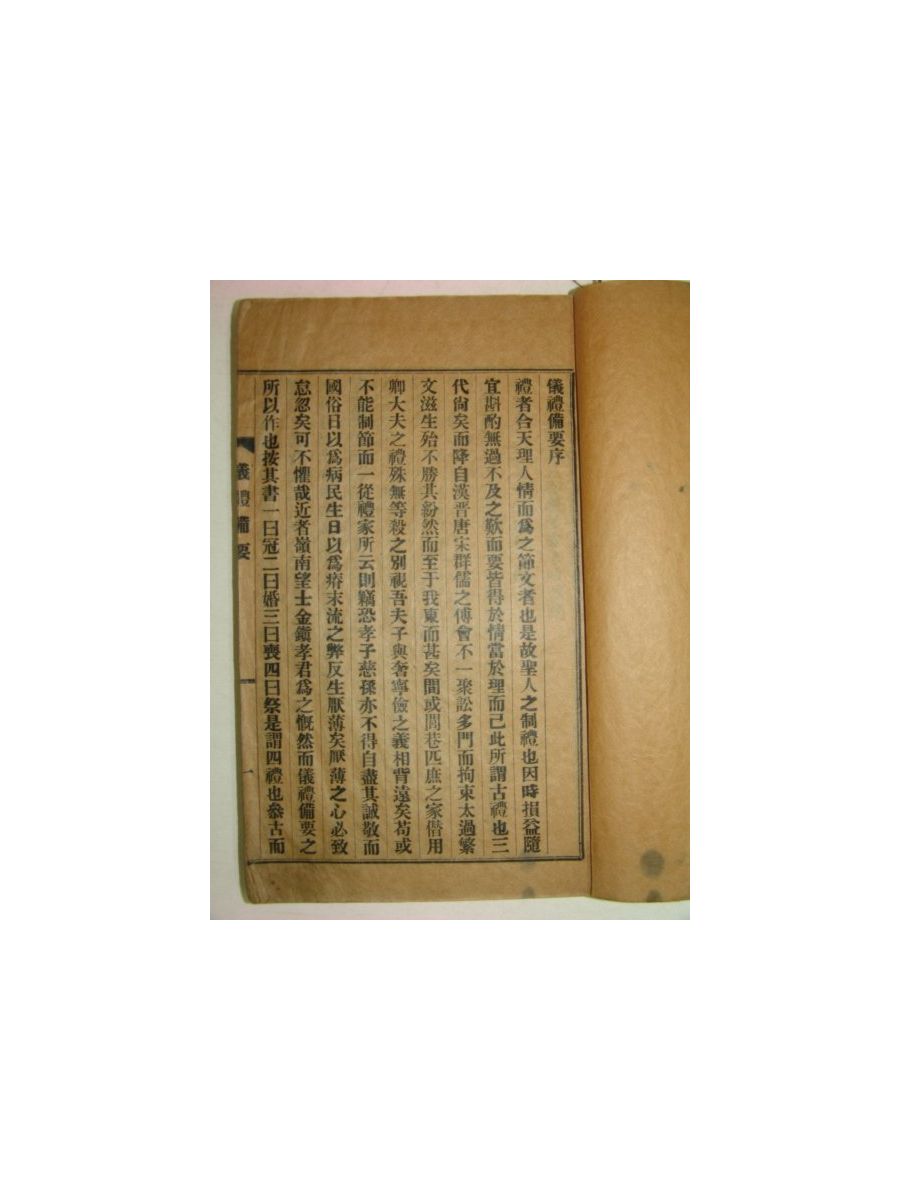 儀禮備要序
禮者合天理人情而爲之節文者也是故聖人之制禮也因時損益隨
宜斟酌無過不及之歎而要皆得於情當於理而已此所謂古禮也三
代尙矣而降自漢晋唐宋群儒之傅會不一聚訟多門而拘束太過繁
文滋生殆不勝其紛然而至于我東而甚矣間或閭巷匹庶之家僭用
卿大夫之禮殊無等殺之別視吾夫子與奢寧儉之義相背遠矣苟或
不能制節而一從禮家所云則竊恐孝子慈孫亦不得自盡其誠敬而
國俗日以爲病民生日以爲瘠末流之弊反生厭薄矣厭薄之心必致
怠忽矣可不懼哉近者嶺南望士金鎭孝君爲之慨然而儀禮備要之
所以作也按其書一曰冠二曰婚三曰喪四曰祭是謂四禮也叅古而
儀禮備要 一